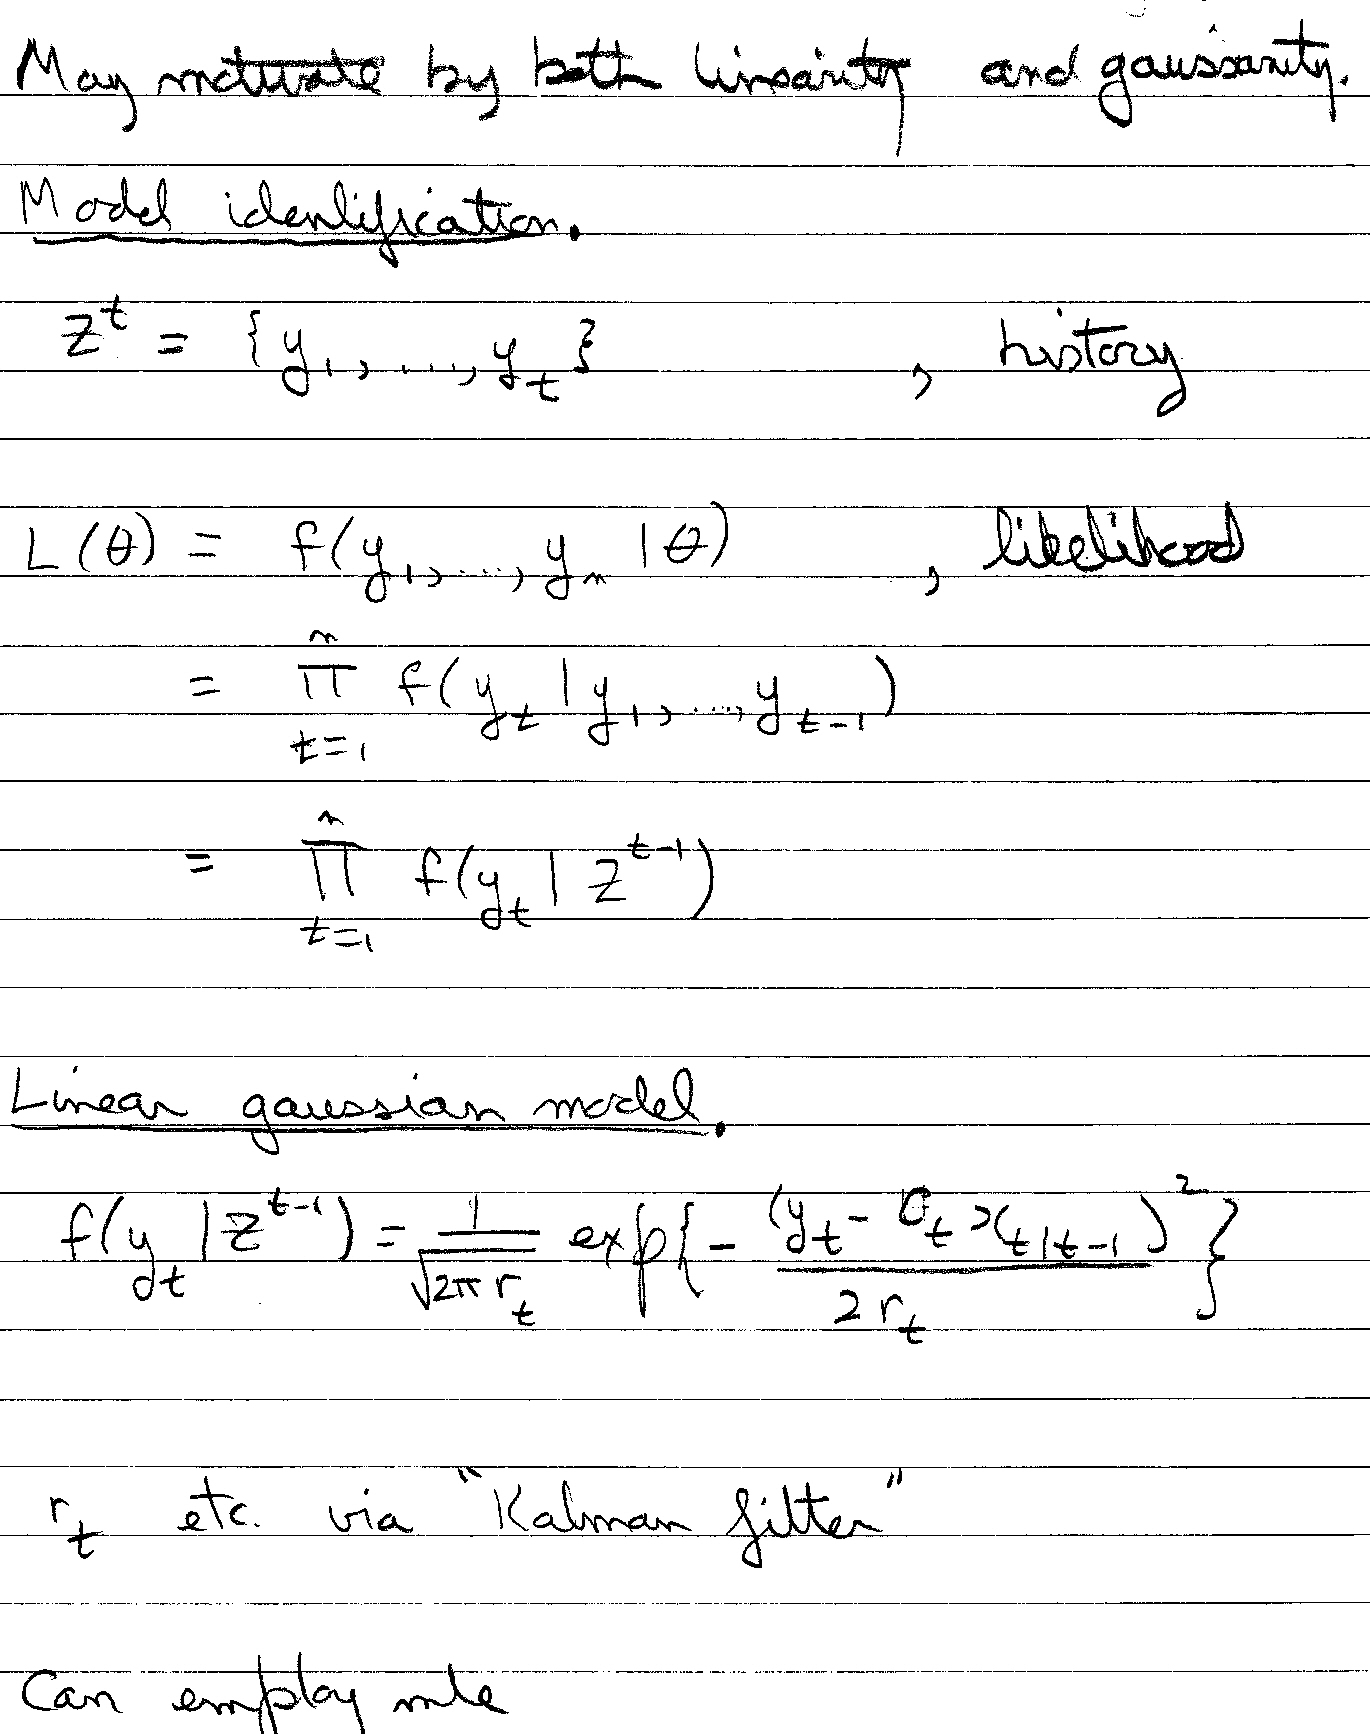 May motivate by both linearity and gaussanity.
Model identification.
z^t = {y_1, ..., y_t} , history
L(θ) = f(y_1, ..., y_n | θ) , likelihood
= ∏_{t=1}^n f(y_t | y_1, ..., y_{t-1})
= ∏_{t=1}^n f(y_t | z^{t-1})
Linear gaussian model.
f(y_t | z^{t-1}) = 1/√(2π r_t) exp{- (y_t - C_t x_{t|t-1})^2 / 2 r_t}
r_t etc. via "Kalman filter"
Can employ mle